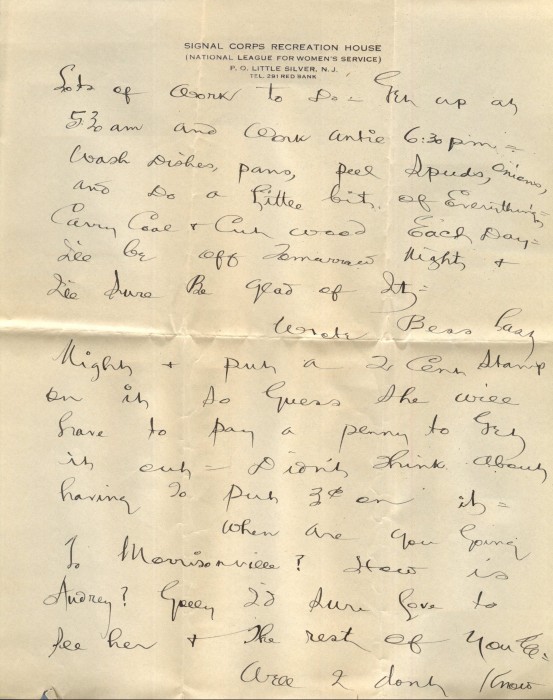 SIGNAL CORPS RECREATION HOUSE
(NATIONAL LEAGUE FOR WOMEN'S SERVICE)
P. O. LITTLE SILVER, N. J.
TEL. 291 RED BANK
Lots of Work to Do = Get up at
5:30 am and Work until 6:30 p.m. =
Wash Dishes, pans, peel Spuds, Onions,
and Do a little bit of Everything =
Carry Coal & Cut wood Each Day =
I'll be off Tomorrow Night &
I'll sure Be glad of It =
Wrote Bess last
Night & put a 2 Cent Stamp
on it so Guess she will
have to pay a penny to Get
it out = Didn't think about
having to put 3¢ on it =
When are you Going
To Morrisonville? How is
Audrey? Golly I'd sure love to
see her & The rest of You all =
Well I don't Know